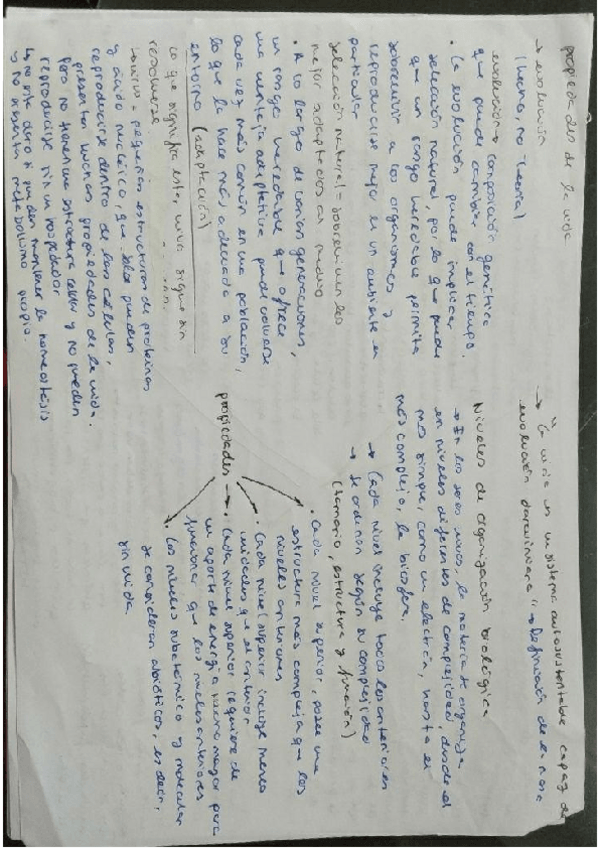 propiedades de la vida
→ evolución
(hecho, no teoría)
evolución → composición genética
que puede cambiar con el tiempo.
• La evolución puede implicar
selección natural, por lo que puede
que un rasgo heredable permita
sobrevivir a los organismos y
reproducirse mejor en un ambiente en
particular
selección natural = sobreviven los
mejor adaptados al medio
• A lo largo de varias generaciones,
un rasgo heredable que ofrece
una ventaja adaptativa puede volverse
cada vez más común en una población,
lo que la hace más adecuada a su
entorno (adaptación)
lo que significa estar vivo sigue sin
resolverse
virus → pequeñas estructuras de proteínas
y ácido nucleico, que solo pueden
reproducirse dentro de las células,
presentan muchas propiedades de la vida.
pero no tienen una estructura celular y no pueden
reproducirse sin un hospedador
pueden mantener la homeostasis
metabolismo propio.
→ "la vida es un sistema autosustentable capaz de
evolución darwiniana" → Definición de la NASA
Niveles de organización biológica
→ En los seres vivos, la materia se organiza
en niveles diferentes de complejidad, desde el
más simple, como un electrón, hasta el
más complejo, la biosfera.
→ Cada nivel incluye todos los anteriores
→ Se ordenan según su complejidad
(tamaño, estructura y función)
propiedades
• Cada nivel superior, posee una
estructura más compleja que los
niveles anteriores
• Cada nivel superior incluye menos
unidades que el anterior
• Cada nivel superior requiere de
un aporte de energía mucho mayor para
funcionar que los niveles anteriores
• Los niveles subatómico y molecular
se consideran abióticos, es decir,
sin vida